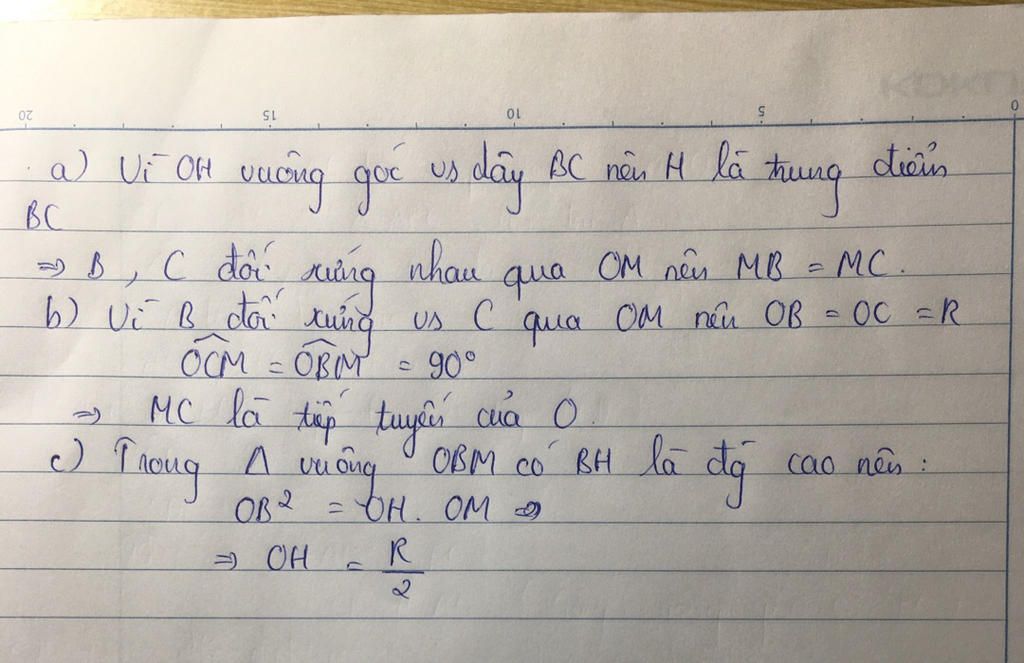 20 15 10 5 0
a) Vì OH vuông góc vs dây BC nên H là trung điểm
BC
=> B, C đối xứng nhau qua OM nên MB = MC.
b) Vì B đối xứng vs C qua OM nên OB = OC = R
\widehat{OCM} = \widehat{OBM} = 90°
=> MC là tiếp tuyến của O.
c) Trong Δ vuông OBM có BH là đg cao nên:
OB² = OH. OM =>
=> OH = R/2